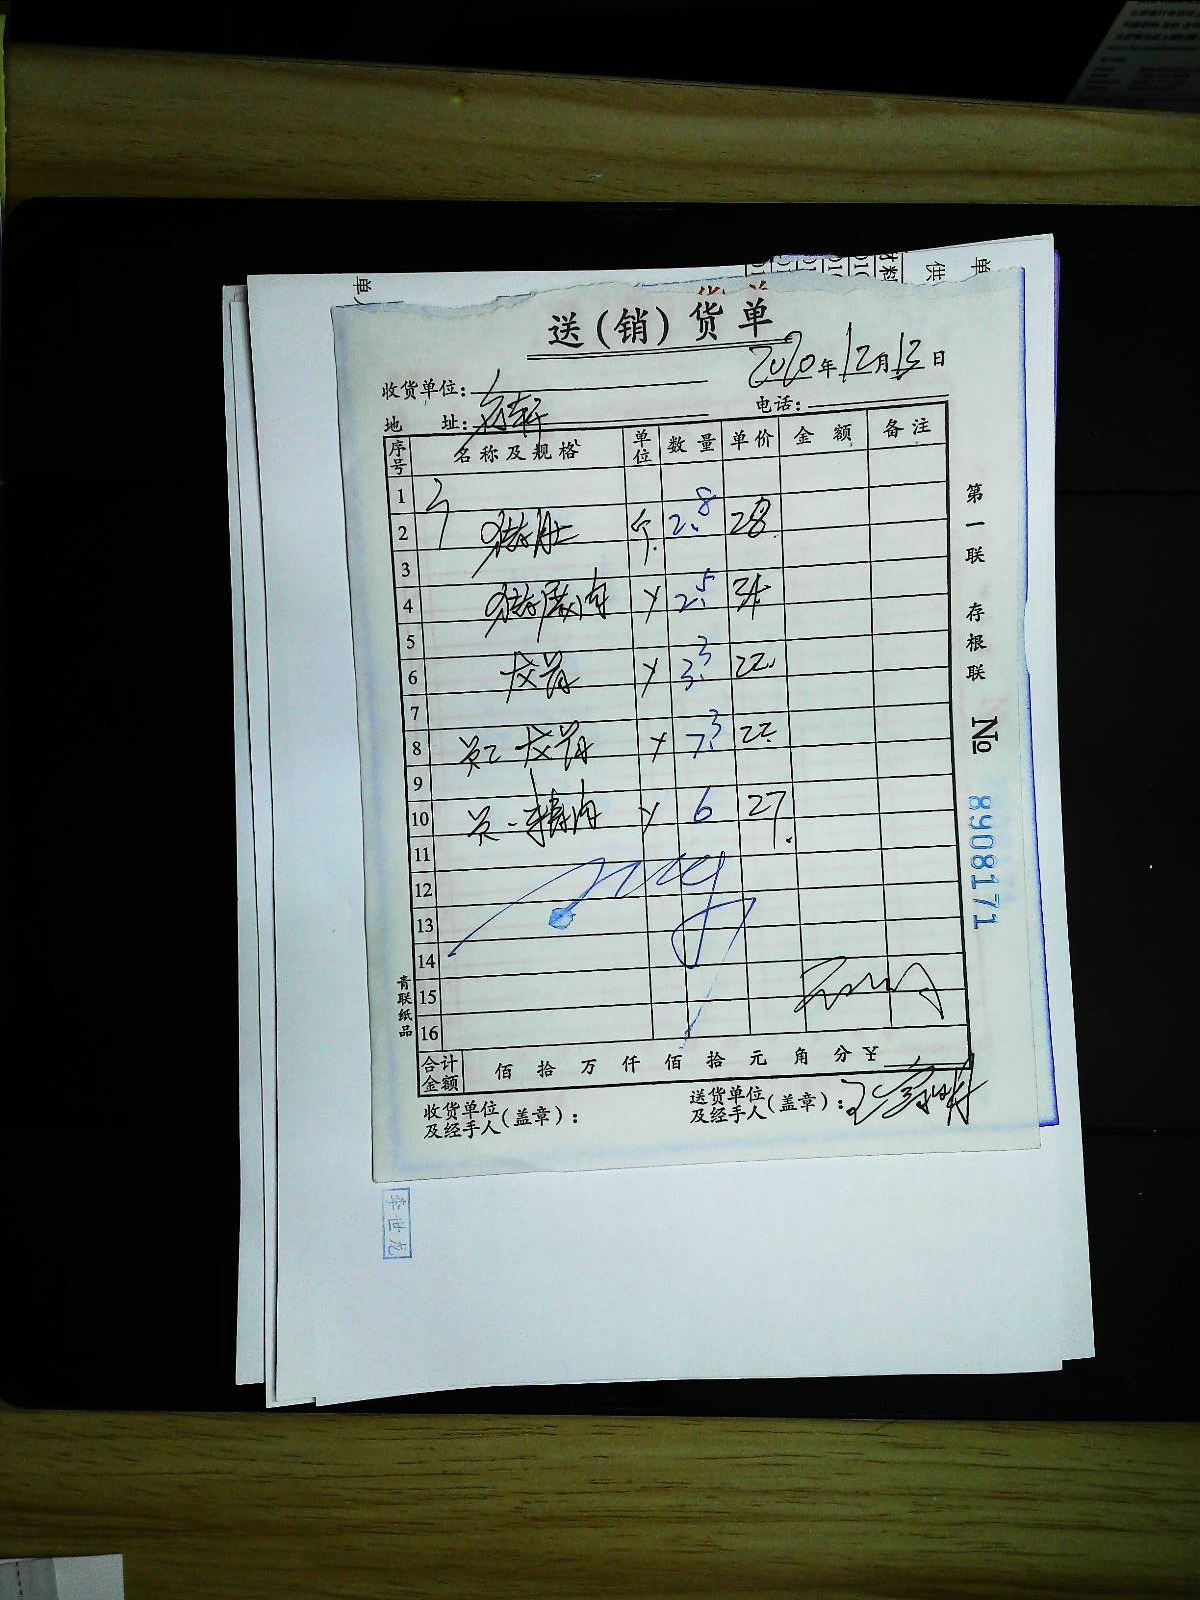 送(销)货单
2020年12月13日
收货单位:
地 址:
电话:
序号 名称及规格 单位 数量 单价 金额 备注
1
2 猪肚 个 2.8 28
3
4 猪瘦肉 2.5 34
5
6 龙骨 3.3 22
7
8 员2 龙骨 7.3 22
9
10 员一 精肉 6 27
11
12
13
14
15
16
合计金额 佰 拾 万 仟 佰 拾 元 角 分 ¥
收货单位及经手人(盖章):
送货单位及经手人(盖章):
第一联 存根联
№ 8908171
青联纸品
李世龙
单
供
材料